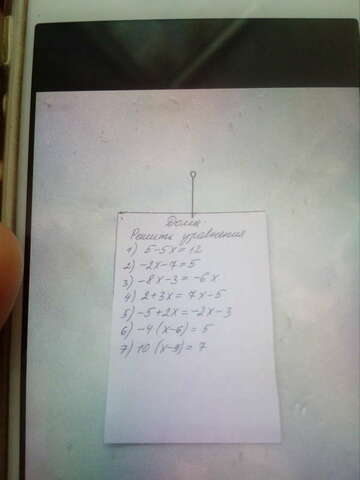 Долж.
Решить уравнения
1) 5-5x=12
2) -2x-7=5
3) -8x-3=-6x
4) 2+3x=7x-5
5) -5+2x=-2x-3
6) -4(x-6)=5
7) 10(x-9)=7